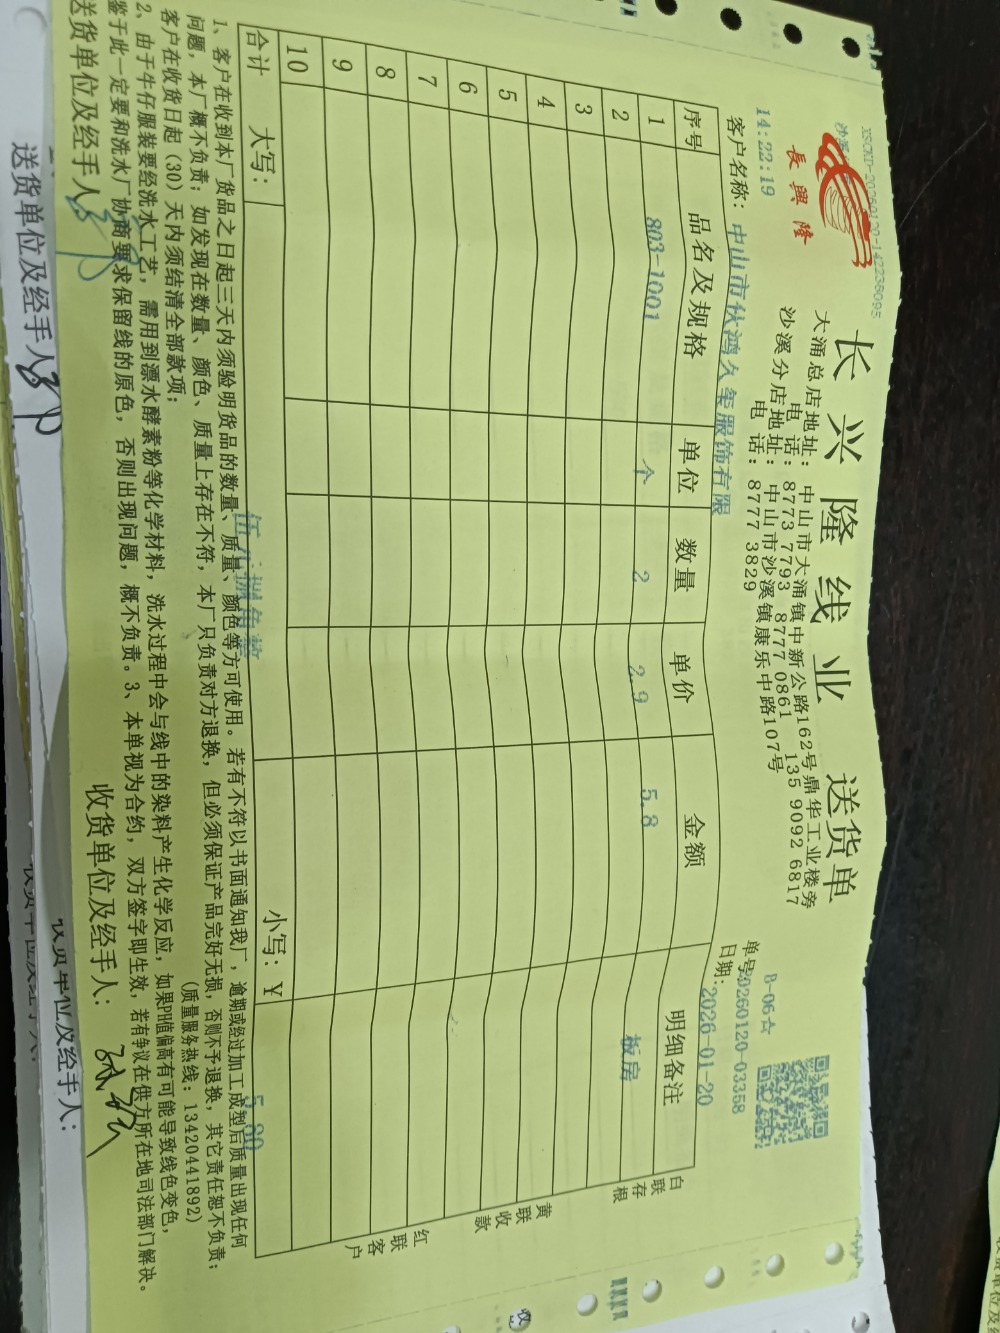 XSCKD-20260120-142238095
長興隆
长兴隆线业 送货单
大涌总店地址: 中山市大涌镇中新公路162号鼎华工业楼旁
电话: 8773 7793 8777 0861 135 9092 6817
沙溪分店地址: 中山市沙溪镇康乐中路107号
电话: 8777 3829
B-06☆
单号: 20260120-03358
日期: 2026-01-20
14:22:19
客户名称: 中山市伙鸿久玺服饰有限
序号 品名及规格 单位 数量 单价 金额 明细备注
1 803-1001 个 2 2.9 5.8 板房
2
3
4
5
6
7
8
9
10
合计 大写: 伍元捌角整 小写: ¥ 5.80
白联存根
黄联收款
红联客户
1、客户在收到本厂货品之日起三天内须验明货品的数量、质量、颜色等方可使用。若有不符以书面通知我厂,逾期或经过加工成型后质量出现任何
问题,本厂概不负责;如发现在数量、颜色、质量上存在不符,本厂只负责对方退换,但必须保证产品完好无损,否则不予退换,其它责任恕不负责;
客户在收货日起(30)天内须结清全部款项; (质量服务热线: 13420441892)
2、由于牛仔服装要经洗水工艺,需用到漂水酵素粉等化学材料,洗水过程中会与线中的染料产生化学反应,如果PH值偏高有可能导致线色变色,
鉴于此一定要和洗水厂协商要求保留线的原色,否则出现问题,概不负责。3、本单视为合约,双方签字即生效,若有争议在供方所在地司法部门解决。
送货单位及经手人: 收货单位及经手人:
送货单位及经手人: 收货单位及经手人: